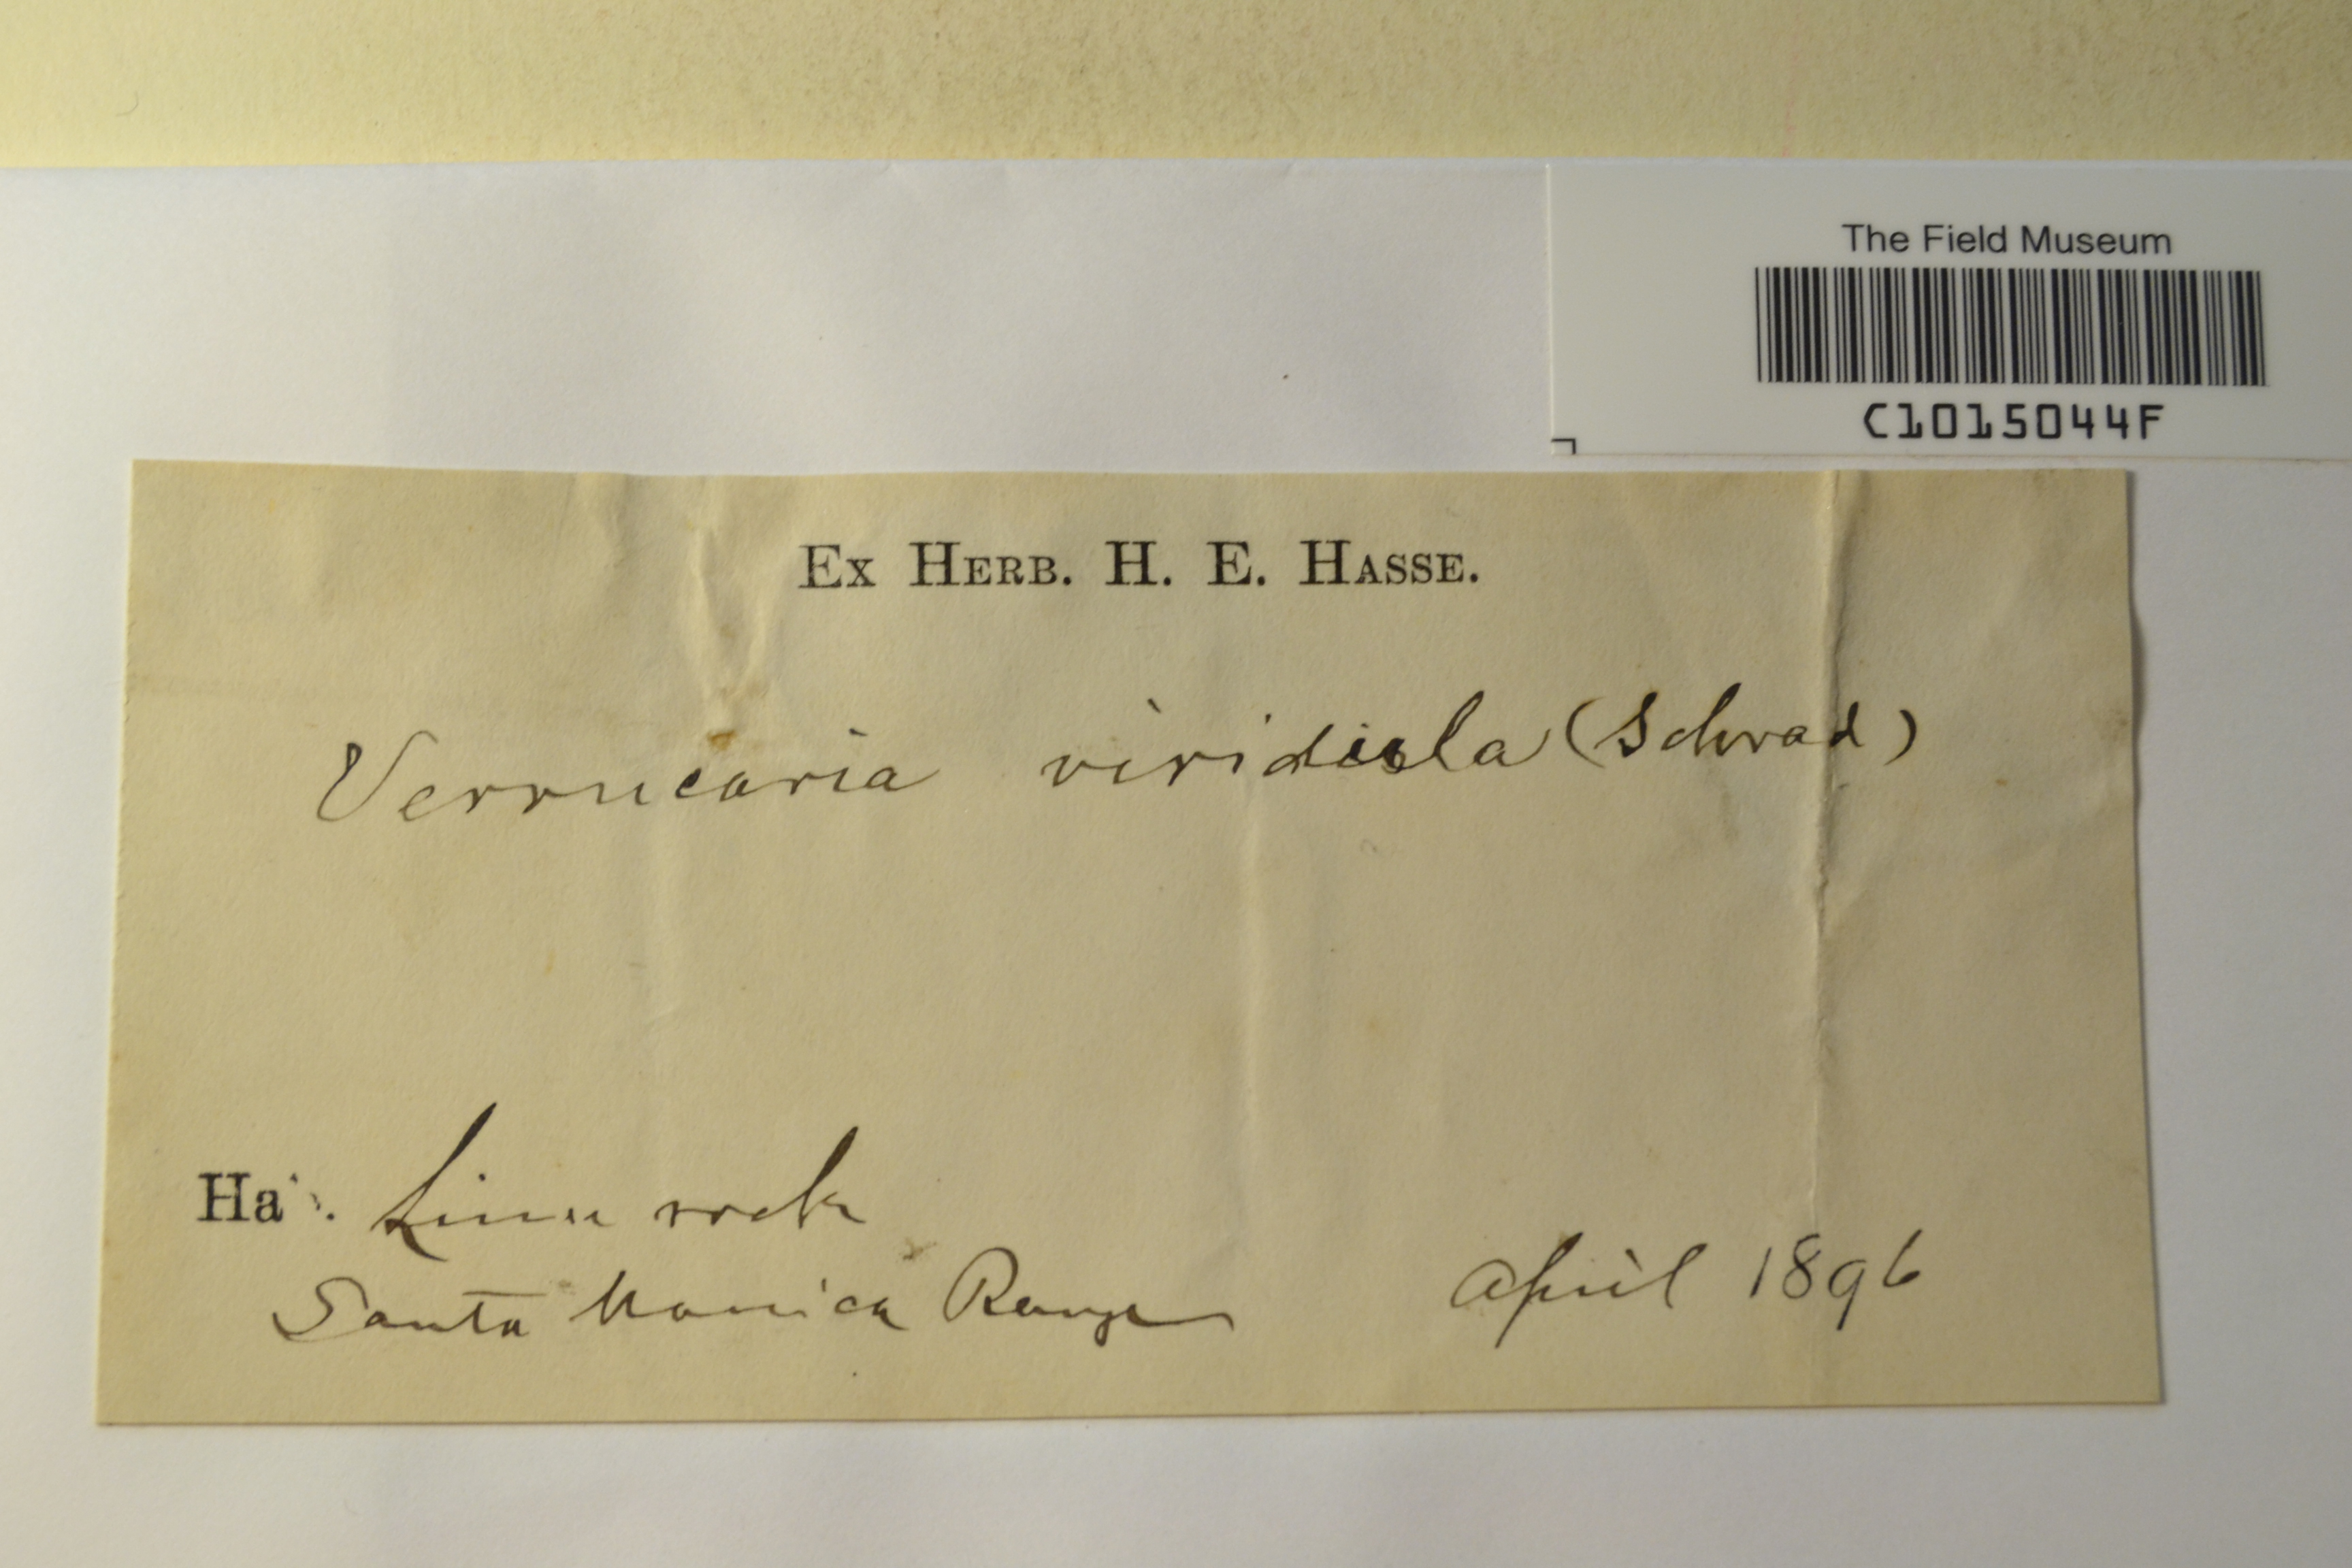 The Field Museum
C1015044F
Ex Herb. H. E. Hasse.
Verrucaria (Schrad)
Ha . Lime rock
Santa Monica Range
April 1896